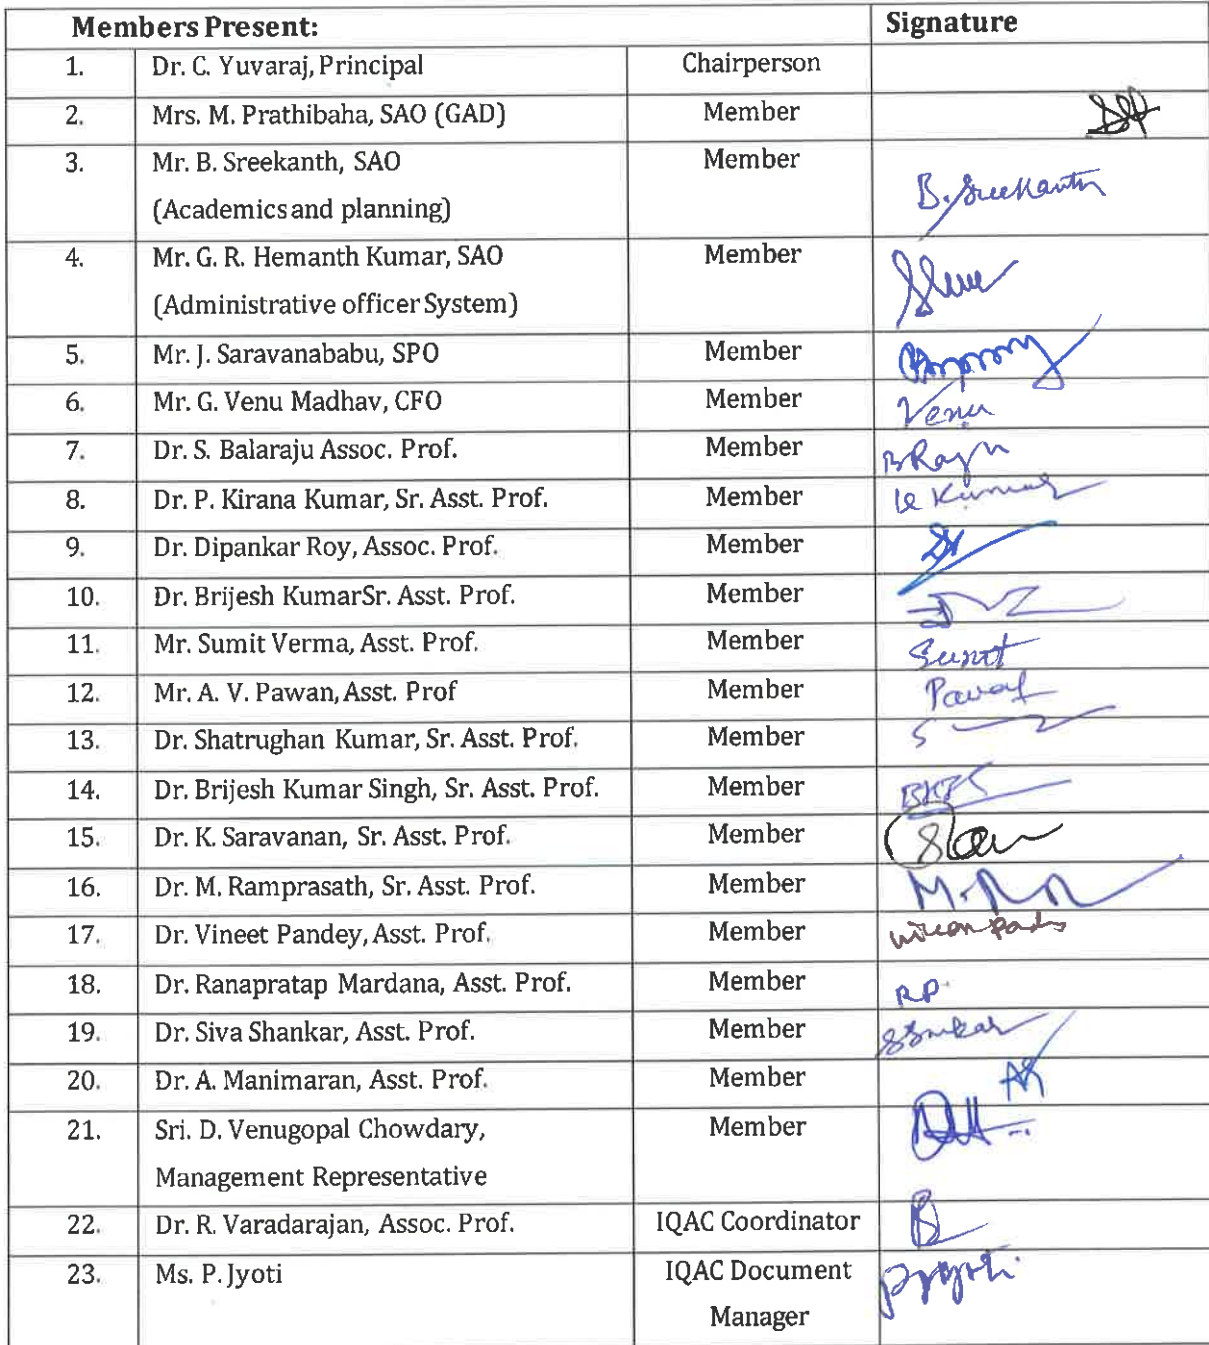 Members Present: Signature
1. Dr. C. Yuvaraj, Principal Chairperson
2. Mrs. M. Prathibaha, SAO (GAD) Member
3. Mr. B. Sreekanth, SAO Member
(Academics and planning) B. Sreekanth
4. Mr. G. R. Hemanth Kumar, SAO Member
(Administrative officer System)
5. Mr. J. Saravanababu, SPO Member
6. Mr. G. Venu Madhav, CFO Member Venu
7. Dr. S. Balaraju Assoc. Prof. Member BRaju
8. Dr. P. Kirana Kumar, Sr. Asst. Prof. Member k Kumar
9. Dr. Dipankar Roy, Assoc. Prof. Member
10. Dr. Brijesh KumarSr. Asst. Prof. Member
11. Mr. Sumit Verma, Asst. Prof. Member Sumit
12. Mr. A. V. Pawan, Asst. Prof Member
13. Dr. Shatrughan Kumar, Sr. Asst. Prof. Member
14. Dr. Brijesh Kumar Singh, Sr. Asst. Prof. Member
15. Dr. K. Saravanan, Sr. Asst. Prof. Member
16. Dr. M. Ramprasath, Sr. Asst. Prof. Member
17. Dr. Vineet Pandey, Asst. Prof. Member
18. Dr. Ranapratap Mardana, Asst. Prof. Member RP
19. Dr. Siva Shankar, Asst. Prof. Member
20. Dr. A. Manimaran, Asst. Prof. Member
21. Sri. D. Venugopal Chowdary, Member
Management Representative
22. Dr. R. Varadarajan, Assoc. Prof. IQAC Coordinator
23. Ms. P. Jyoti IQAC Document PJyoti
Manager